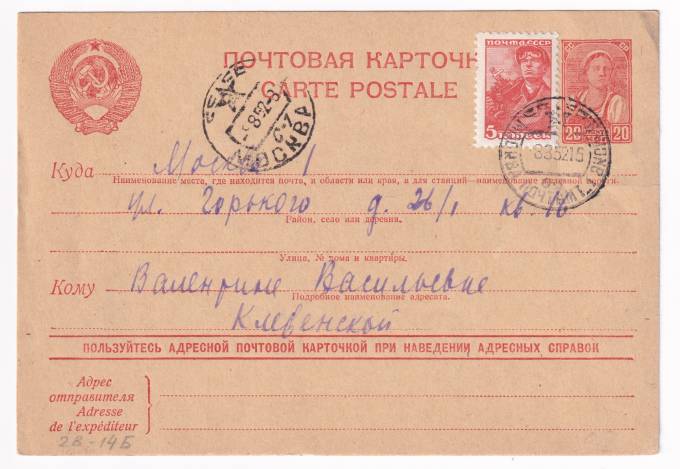 ПОЧТОВАЯ КАРТОЧК
CARTE POSTALE
ПОЧТА СССР
5 КОПЕЕК
20 20
СССР
8 8 52 - 6
С-7
МОСКВА
8 8 52 16
Куда Москва 1
Наименование места, где находится почта, и области или края, а для станций—наименование железной дороги.
ул. Горького д. 26/1 кв. 16
Район, село или деревня.
Улица, № дома и квартиры.
Кому Валентине Васильевне
Подробное наименование адресата.
Клевенской
ПОЛЬЗУЙТЕСЬ АДРЕСНОЙ ПОЧТОВОЙ КАРТОЧКОЙ ПРИ НАВЕДЕНИИ АДРЕСНЫХ СПРАВОК
Адрес
отправителя
Adresse
de l'expéditeur
2В-14Б